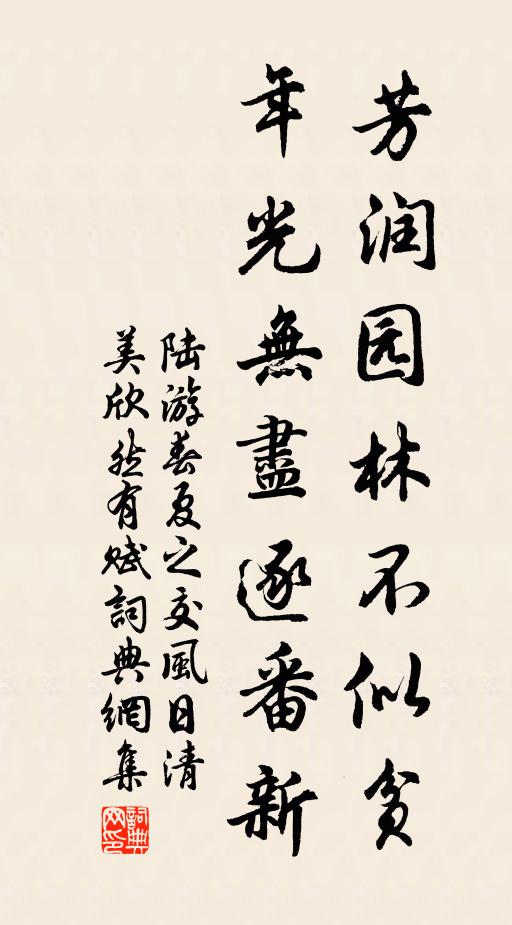 芳润园林不似貧
年光無盡逐番新
陆游春夏之交風日清
美欣然有赋詞典網集
詞典网印